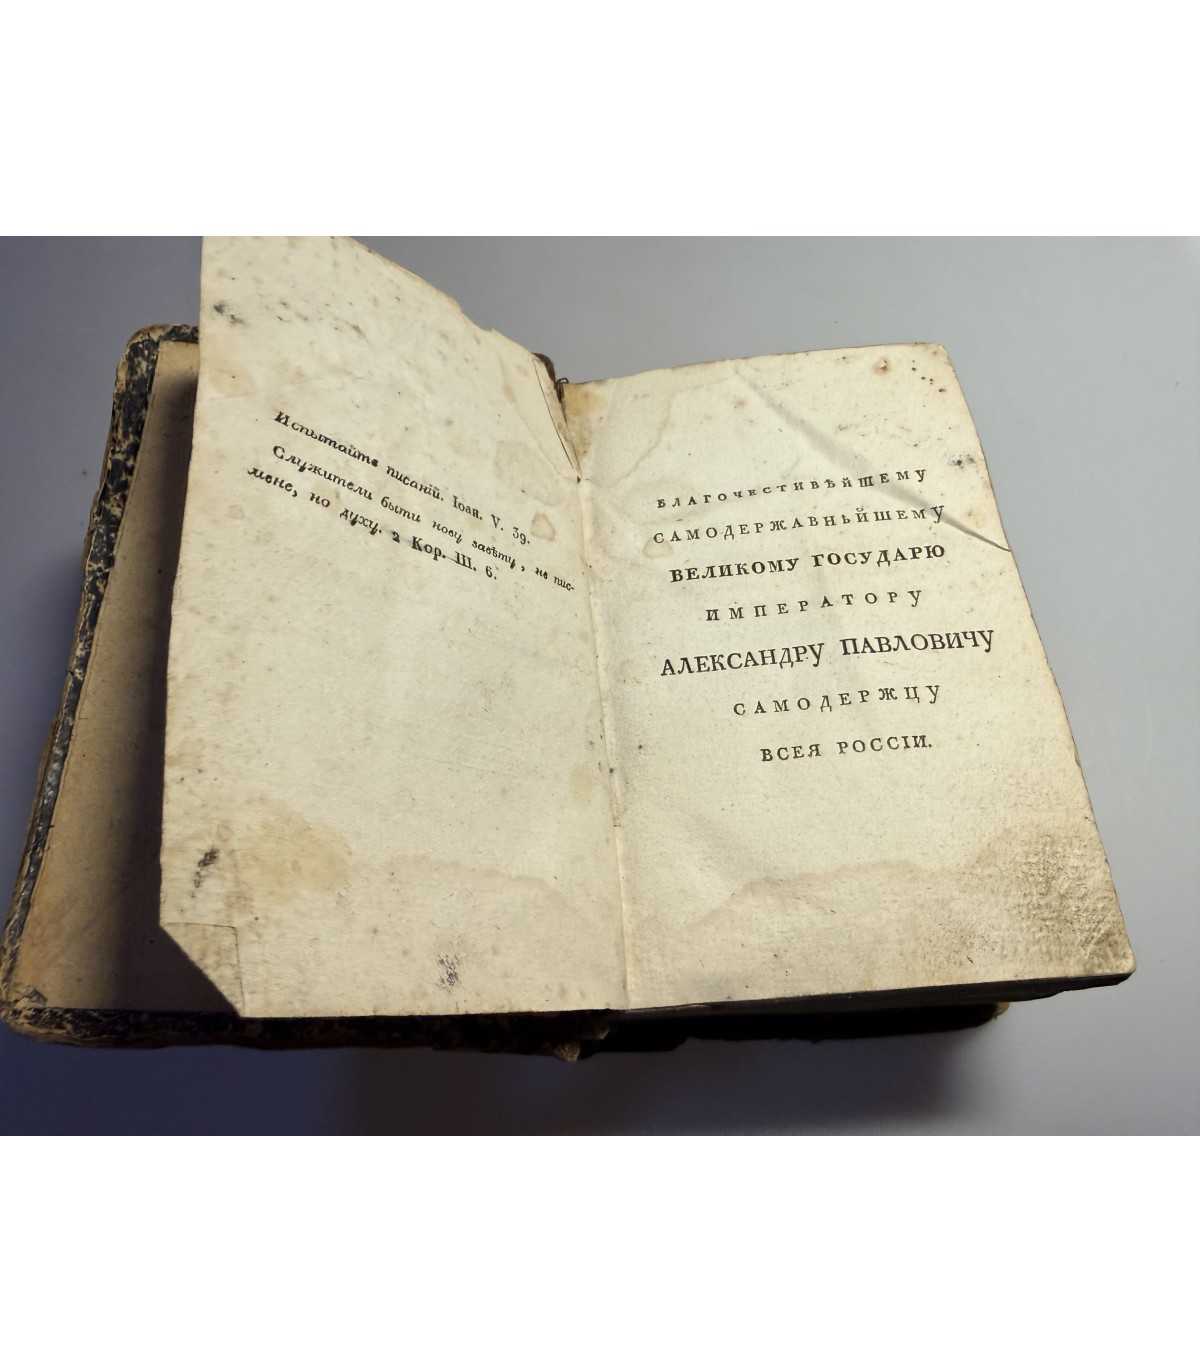 Испытайте писаній. Іоан. V. 39.
Служители быти нову завѣту, не пис-
мене, но духу. 2 Кор. III. 6.
БЛАГОЧЕСТИВѢЙШЕМУ
САМОДЕРЖАВНѢЙШЕМУ
ВЕЛИКОМУ ГОСУДАРЮ
ИМПЕРАТОРУ
АЛЕКСАНДРУ ПАВЛОВИЧУ
САМОДЕРЖЦУ
ВСЕЯ РОССІИ.